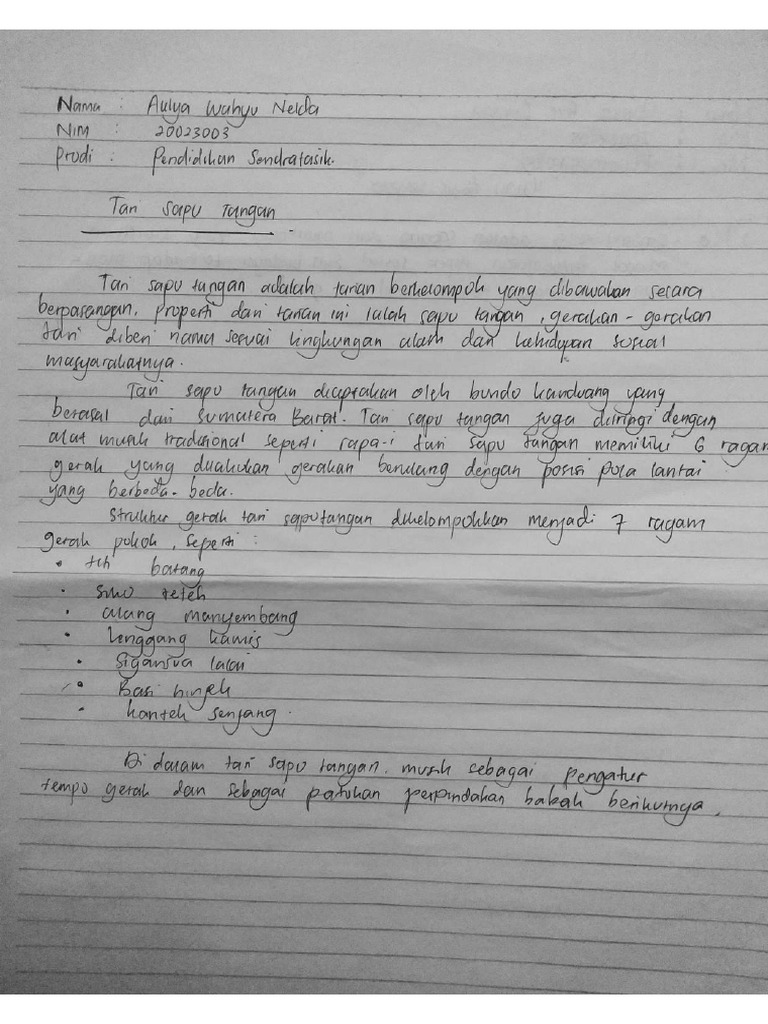 Nama : Aulya Wahyu Nelda
Nim : 20023003
Prodi : Pendidikan Sendratasik.
Tari sapu tangan
Tari sapu tangan adalah tarian berkelompok yang dibawakan secara
berpasangan. Properti dari tarian ini ialah sapu tangan, gerakan-gerakan
tari diberi nama sesuai lingkungan alam dan kehidupan sosial
masyarakatnya.
Tari sapu tangan diciptakan oleh bundo kanduang yang
berasal dari Sumatera Barat. Tari sapu tangan juga diiringi dengan
alat musik tradisional seperti rapa-i tari sapu tangan memiliki 6 ragam
gerak yang dilakukan gerakan berulang dengan posisi pola lantai
yang berbeda-beda.
Struktur gerak tari saputangan dikelompokkan menjadi 7 ragam
gerak pokok, seperti :
• batang
• siko
• alang manyembang
• lenggang kamis
• lalai
• Basi
• kanteh senjang.
Di dalam tari sapu tangan. musik sebagai pengatur
tempo gerak dan sebagai patokan perpindahan babak berikutnya.